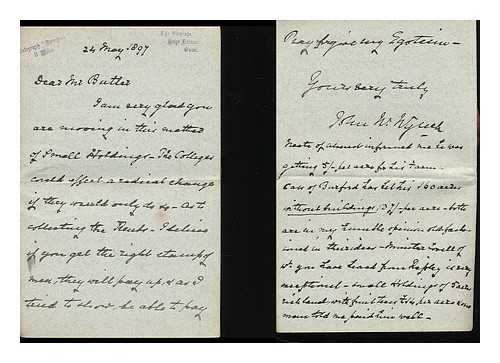 24 May 1897
Dear Mr Butler
I am very glad you
are moving in this matter
of Small Holdings - The Colleges
could effect a radical change
if they would only do so - as to
collecting the Rents - I believe
if you get the right stamp of
men, they will pay up & as I
tried to show be able to pay
Pray forgive my Egotism -
Yours very truly
John
informed me he was
getting 5/- per acre for his Farm -
of Burford has let his 160 acres
without buildings 7/- per acre - both
are in my humble opinion old fash-
ioned in their ideas -
you have heard from Ripley is very
exceptional - small Holdings of 5 acres
rich land with fruit trees per acre & one
man told me paid him well -